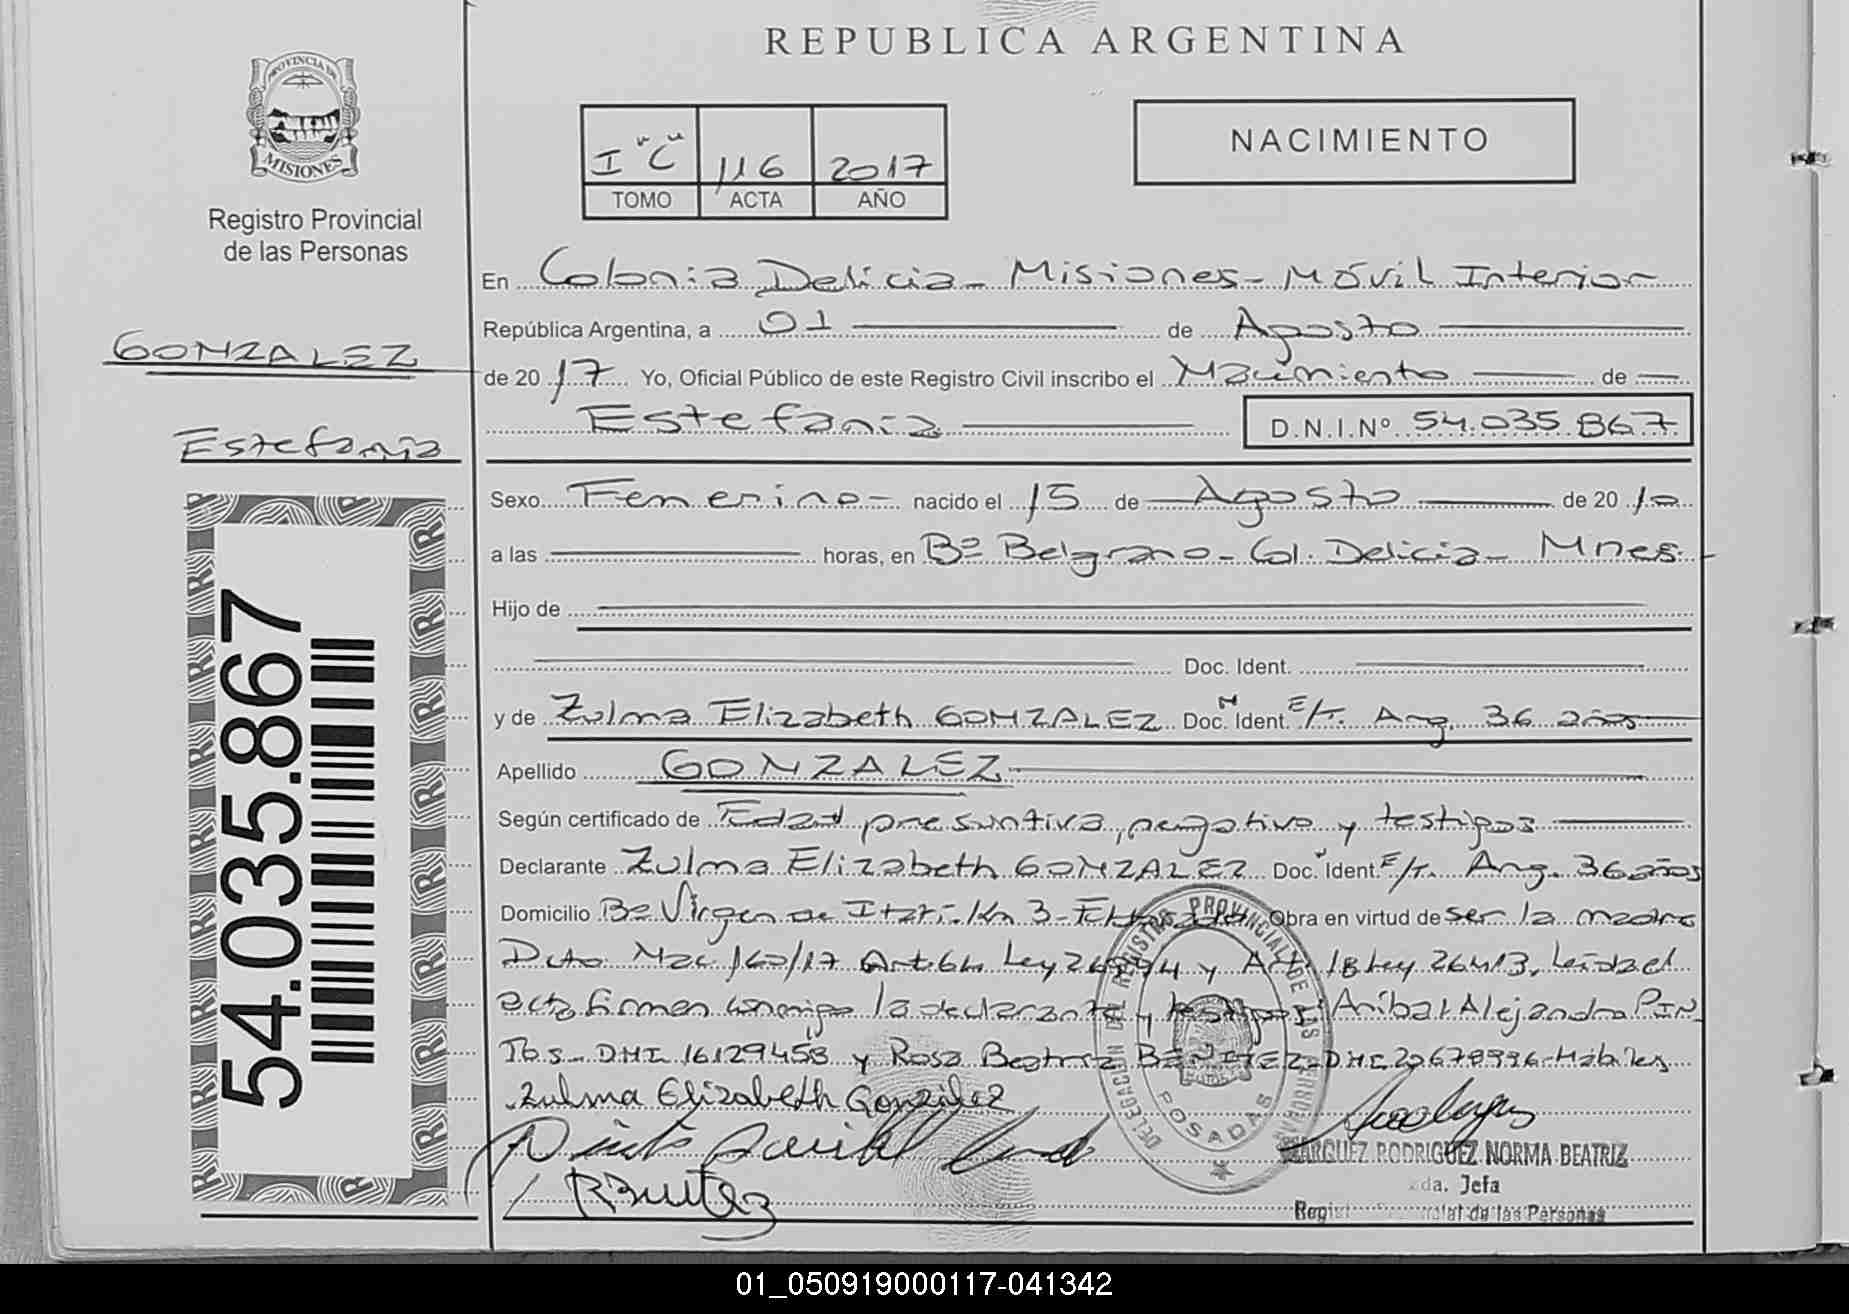 REPUBLICA ARGENTINA
PROVINCIA DE
MISIONES
Registro Provincial
de las Personas
I "C" 116 2017
TOMO ACTA AÑO
NACIMIENTO
GONZALEZ
Estefania
54.035.867
En Colonia Delicia - Misiones - Móvil Interior
República Argentina, a 01 de Agosto
de 2017 Yo, Oficial Público de este Registro Civil inscribo el Nacimiento de
Estefania D.N.I.Nº 54.035.867
Sexo Femenino - nacido el 15 de Agosto de 2010
a las horas, en Bº Belgrano - Col. Delicia - Mnes.
Hijo de
Doc. Ident.
y de Zulma Elizabeth GONZALEZ Doc. N Ident. E/T. Arg. 36 años
Apellido GONZALEZ
Según certificado de Edad presuntiva, negativo y testigos
Declarante Zulma Elizabeth GONZALEZ Doc. Ident. E/T. Arg. 36 años
Domicilio Bº Virgen de Itati - Km 3 - Obra en virtud de ser la madre
Dcto Nac 160/17 Art 64 Ley 26994 y Art. 18 Ley 26413, Leida el
acta firman conmigo la declarante y testigos: Anibal Alejandro PIN
TOS - DNI 16129458 y Rosa Beatriz BENITEZ - DNI - Hábiles
Zulma Elizabeth González
RBenitez
DELEGACION DEL REGISTRO PROVINCIAL DE LAS PERSONAS
POSADAS
MARQUEZ RODRIGUEZ NORMA BEATRIZ
da. Jefa
de las Personas
01_050919000117-041342